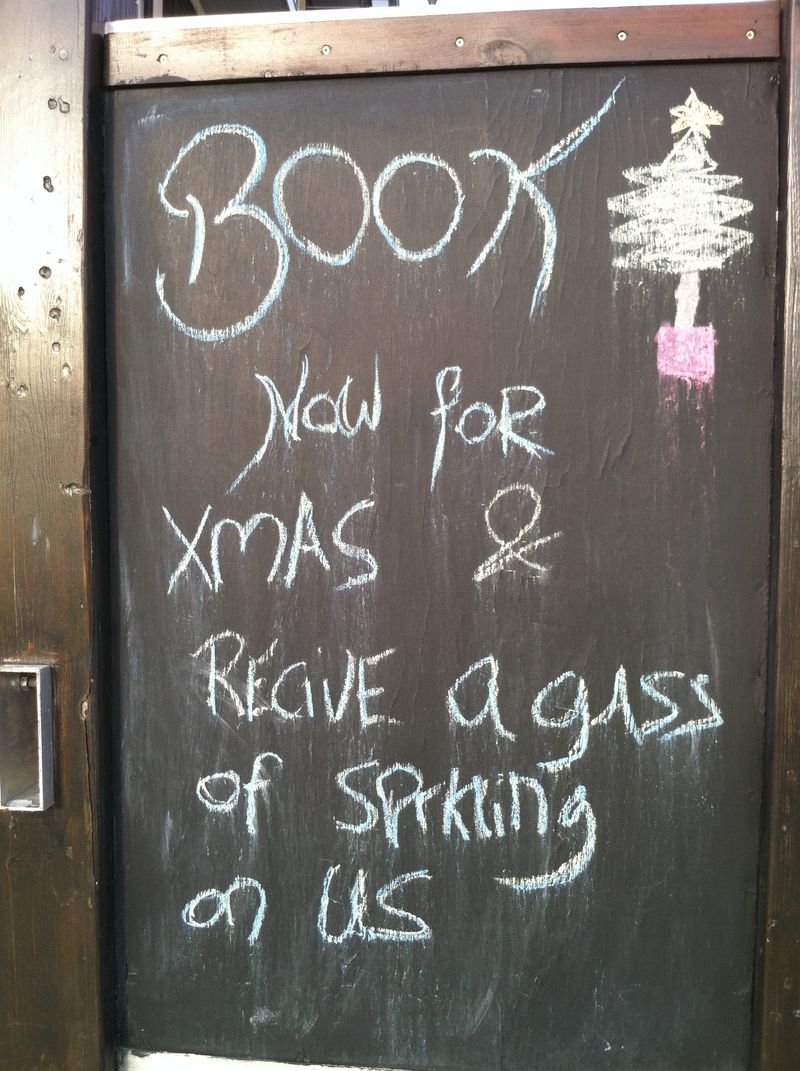 BOOK
NOW FOR
XMAS &
RECIVE a gass
of sprkling
on US